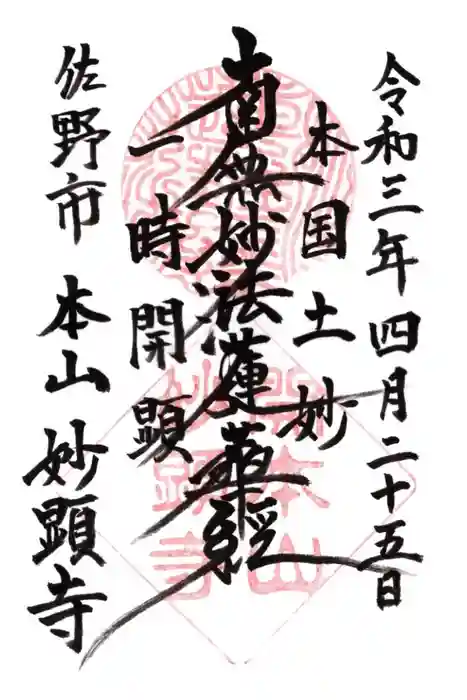 令和三年四月二十五日
本国土妙
南無妙法蓮華経
一時開顕
佐野市 本山 妙顕寺
開本山
妙顕寺